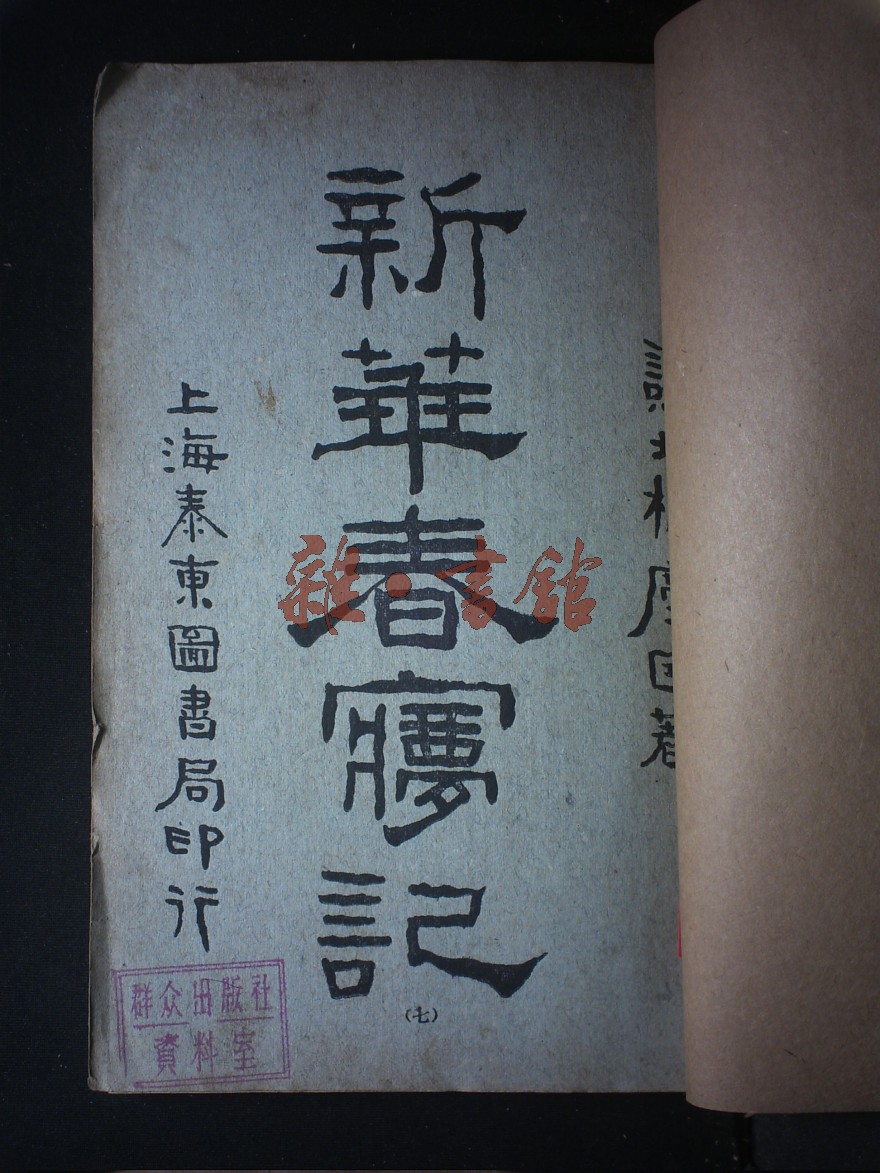 北楊塵因著
新華春夢記
(七)
上海泰東圖書局印行
群众出版社
資料室
雜·書館